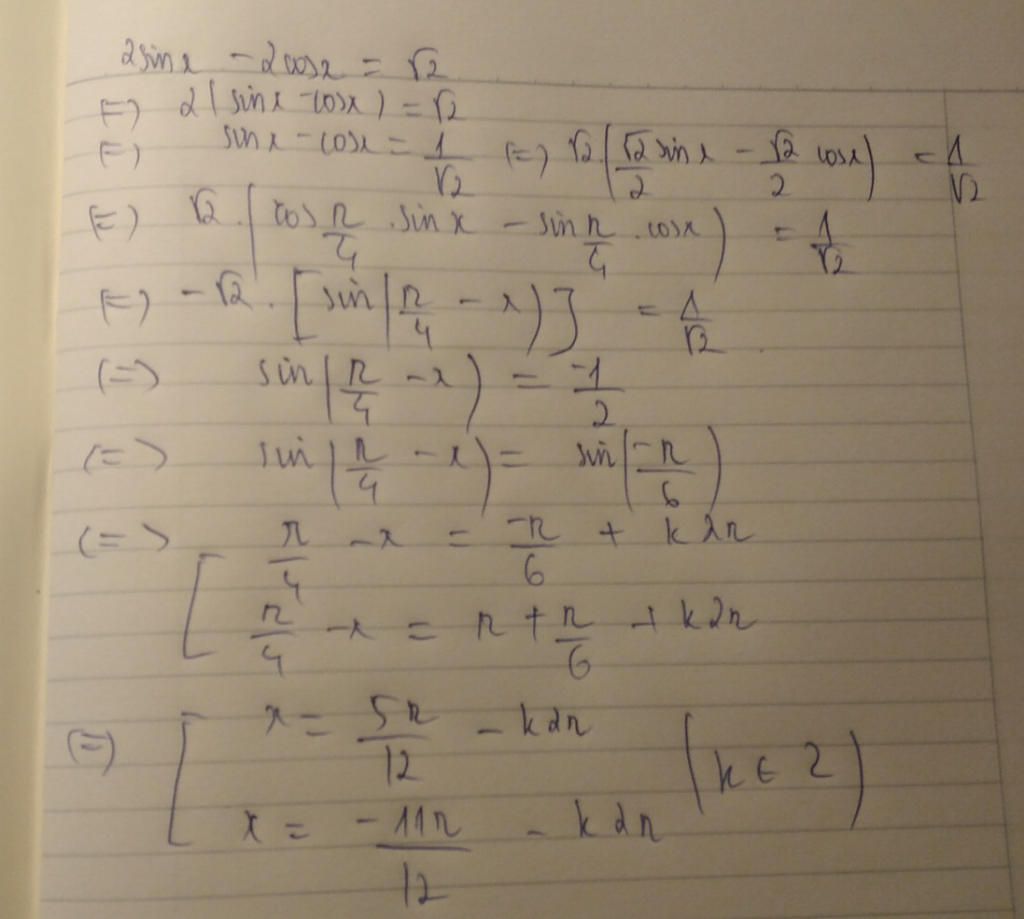 2sinx - 2cosx = √2
(=) 2(sinx - cosx) = √2
(=) sinx - cosx = 1/√2 (=) √2.(√2/2 sinx - √2/2 cosx) = 1/√2
(=) √2 . (cos π/4 . sinx - sin π/4 . cosx) = 1/√2
(=) -√2 . [sin(π/4 - x)] = 1/√2 .
(=) sin(π/4 - x) = -1/2
(=) sin(π/4 - x) = sin(-π/6)
(=) [ π/4 - x = -π/6 + k2π
π/4 - x = π + π/6 + k2π
(=) [ x = 5π/12 - k2π (k ∈ Z)
x = -11π/12 - k2π